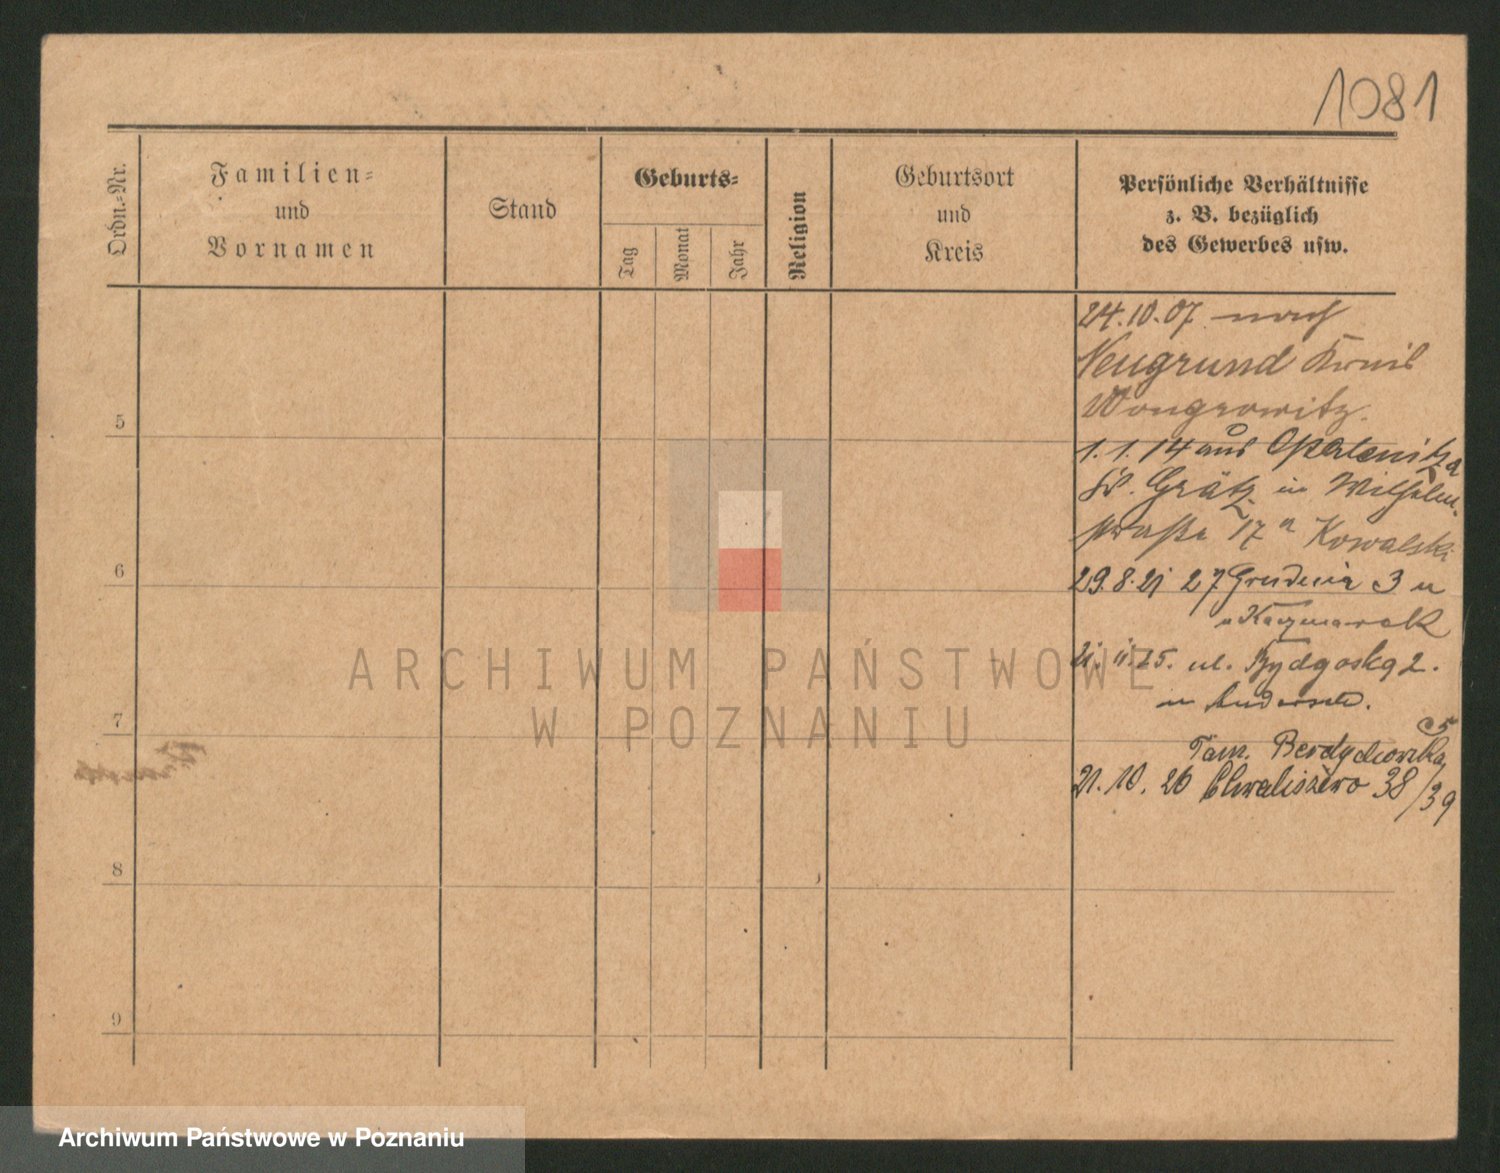 1081
Ordn.-Nr.
Familien-
und
Vornamen
Stand
Geburts-
Tag
Monat
Jahr
Religion
Geburtsort
und
Kreis
Persönliche Verhältnisse
z. B. bezüglich
des Gewerbes usw.
24.10.07 nach
Neugrund Kreis
Wongrowitz.
5
1.1.14 aus Opalenitza
Grätz in Wilhelm-
straße 17a Kowalski
6
29.8.21 27 Grudnia 3 u
Kaczmarek
21.11.25. ul. Bydgoska 2.
7
Tam. Berdychowska
21.10.26 Chwaliszewo 38/39
8
9
ARCHIWUM PAŃSTWOWE
W POZNANIU
Archiwum Państwowe w Poznaniu